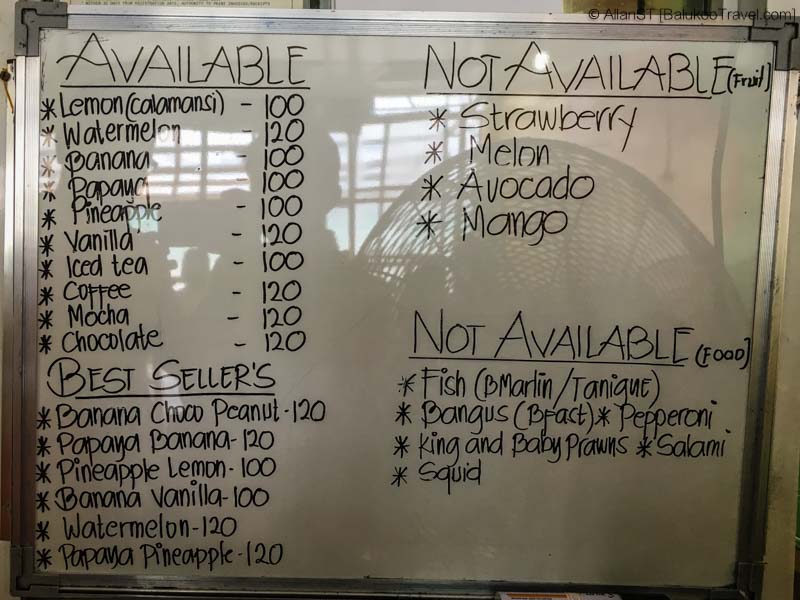 © AllanST [BalukooTravel.com]
AVAILABLE
* Lemon (calamansi) - 100
* Watermelon - 120
* Banana - 100
* Papaya - 100
* Pineapple - 100
* Vanilla - 120
* Iced tea - 100
* Coffee - 120
* Mocha - 120
* Chocolate - 120
BEST SELLER'S
* Banana Choco Peanut - 120
* Papaya Banana - 120
* Pineapple Lemon - 100
* Banana Vanilla - 100
* Watermelon - 120
* Papaya Pineapple - 120
NOT AVAILABLE (Fruit)
* Strawberry
* Melon
* Avocado
* Mango
NOT AVAILABLE (FOOD)
* Fish (BMarlin / Tanigue)
* Bangus (BFast) * Pepperoni
* King and Baby Prawns * Salami
* Squid